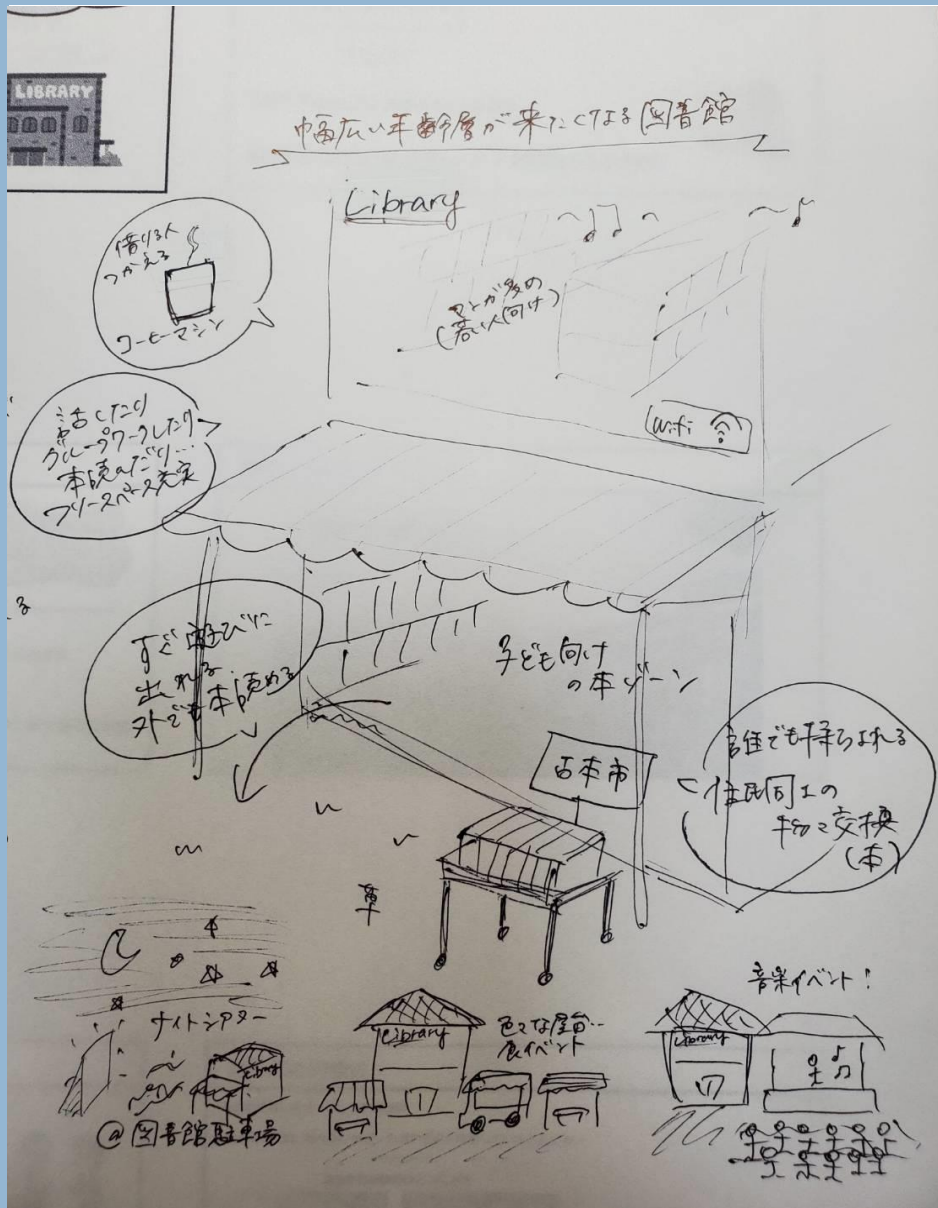 LIBRARY
幅広い年齢層が来たくなる図書館
Library
借りる人
つかえる
コーヒーマシン
マンガ多め
(若い人向け)
wifi
話したり
グループワークしたり
本読んだり…
フリースペース充実
すぐ遊びに
出れる
外でも本読める
子ども向け
の本ゾーン
古本市
誰でも持ちよれる
住民同士の
物々交換
(本)
草
ナイトシアター
Library
@図書館駐車場
色々な屋台…
食イベント
Library
音楽イベント!
Library